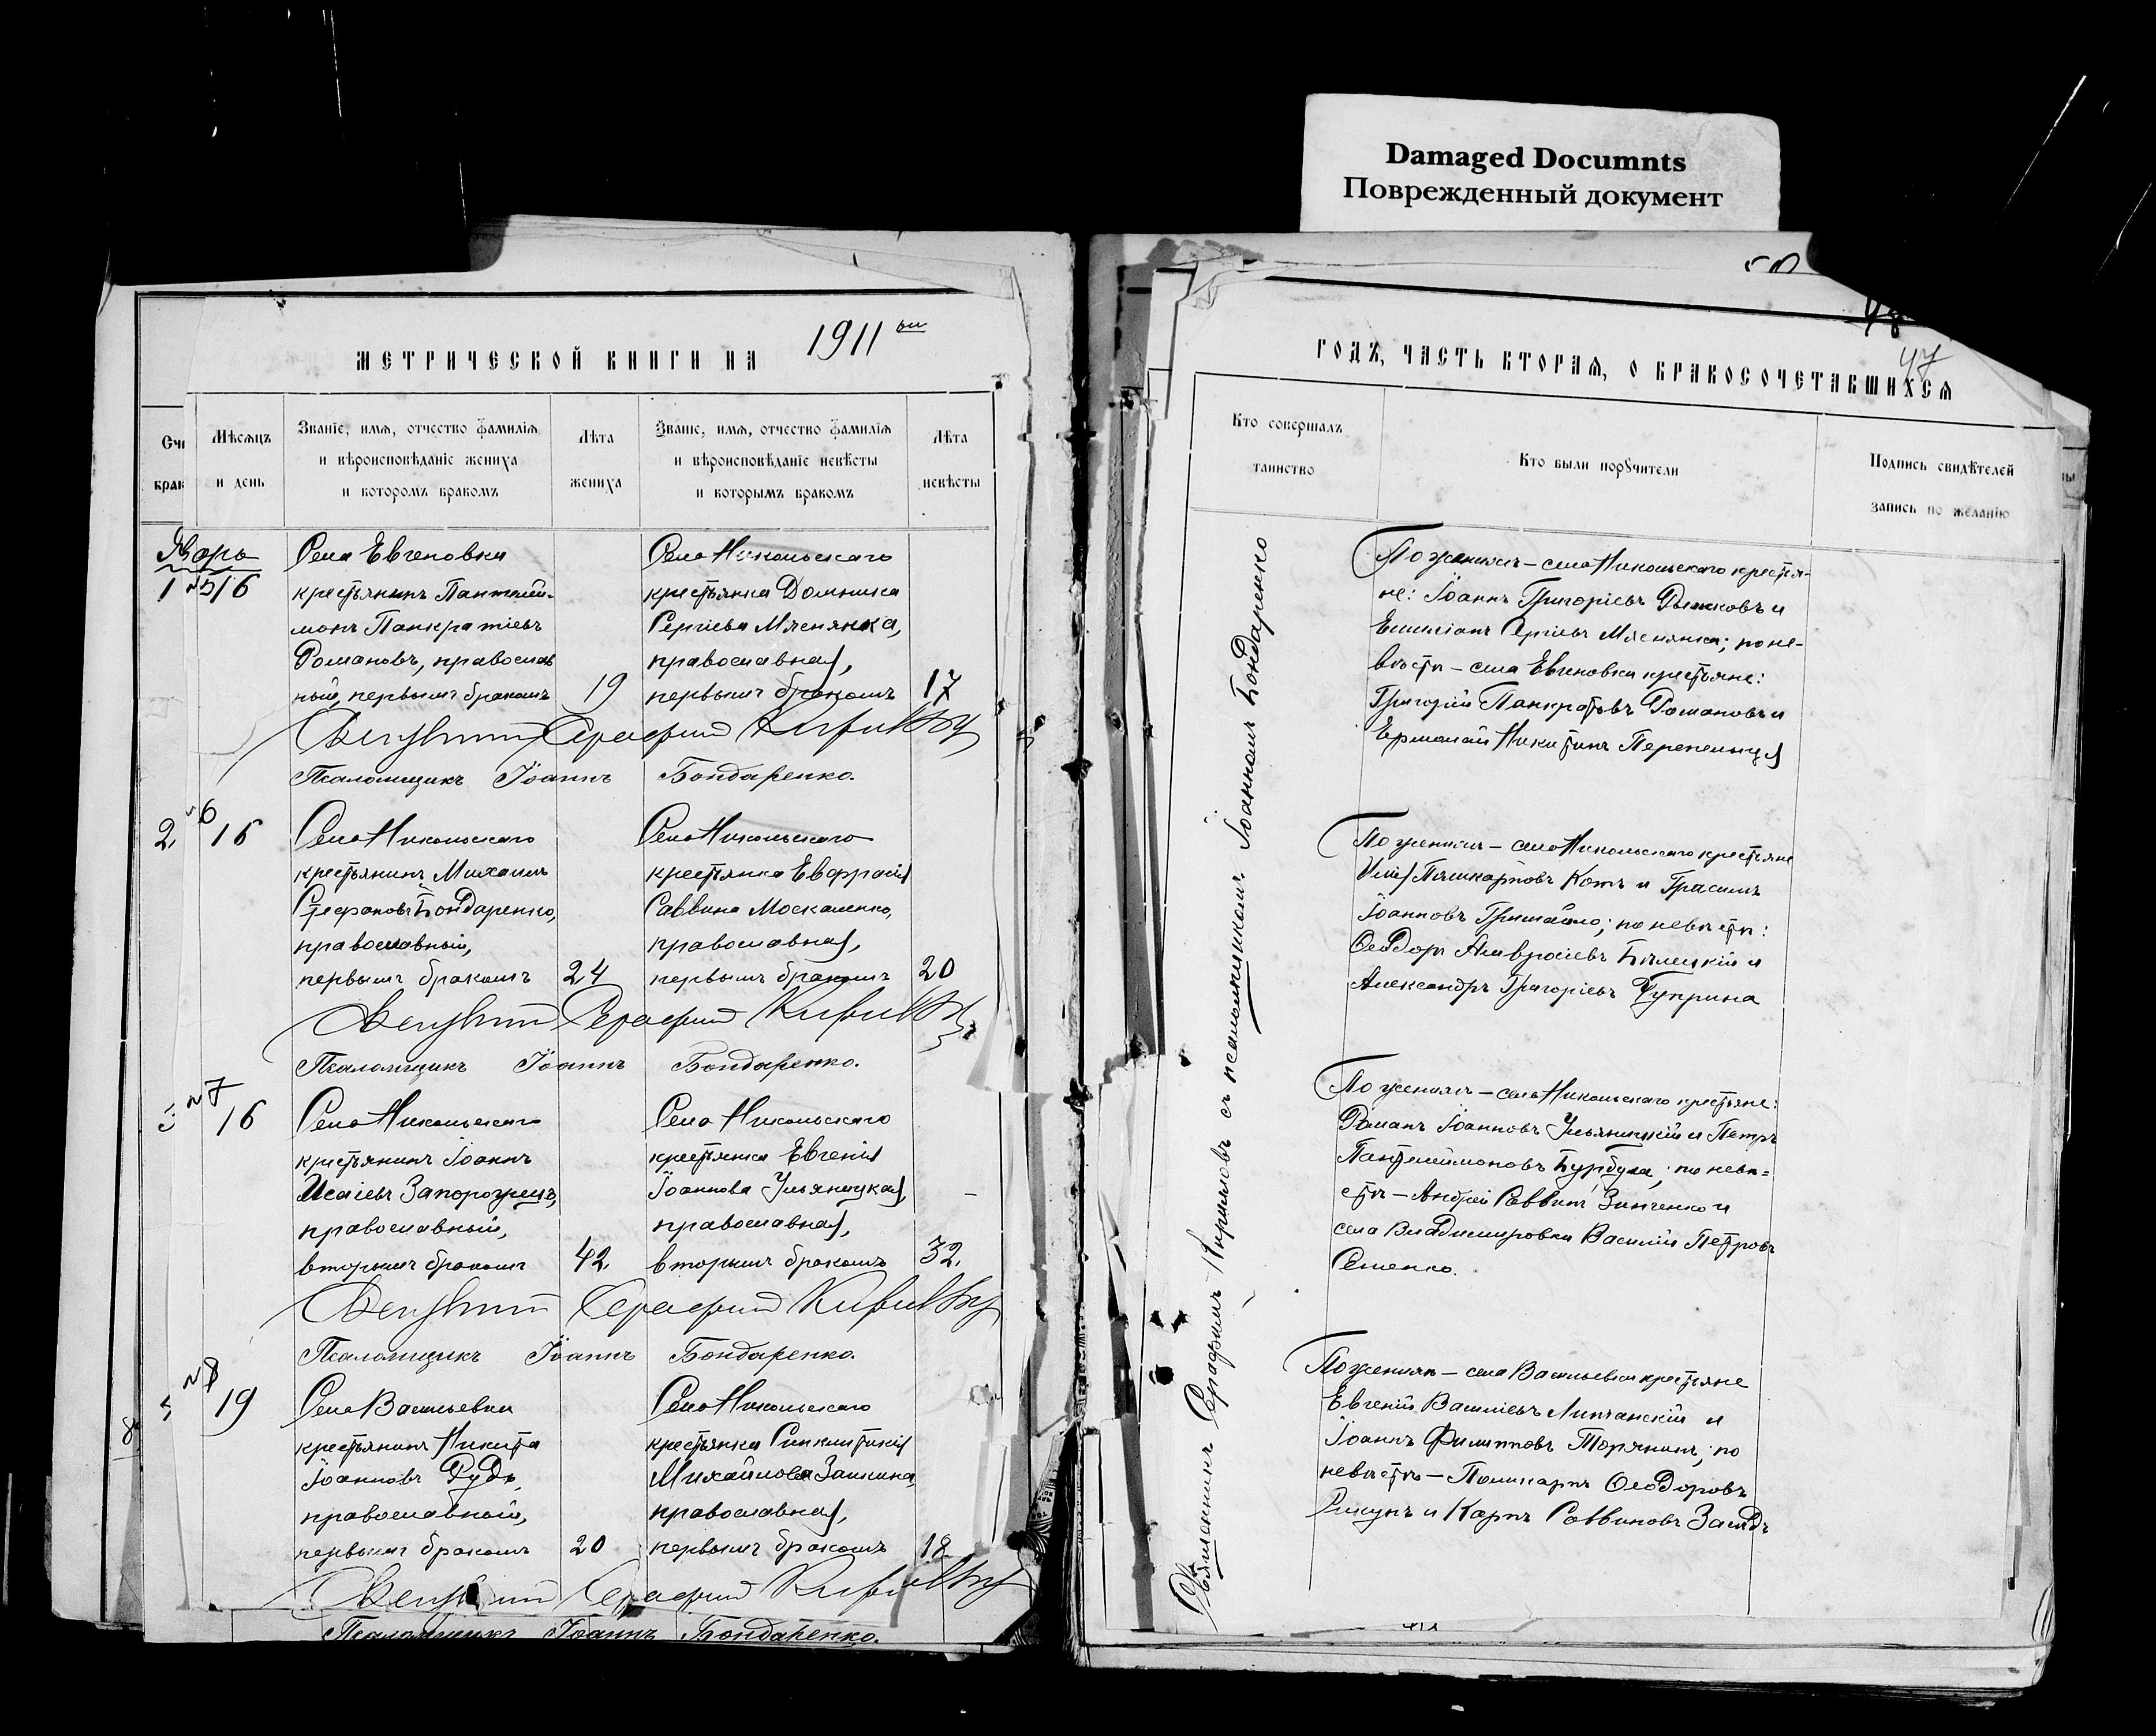 Damaged Documnts
Поврежденный документ
МЕТРИЧЕСКОЙ КНИГИ НА 1911 ый
Счи
брак
Мѣсяцъ
и день
Званіе, имя, отчество фамилія
и вѣроисповѣданіе жениха
и которомъ бракомъ
Лѣта
жениха
Званіе, имя, отчество фамилія
и вѣроисповѣданіе невѣсты
и которымъ бракомъ
Лѣта
невѣсты
Январь
1 №5 16
Села Евгеновки
крестьянинъ Пантелей-
монъ Панкратіевъ
Романовъ, православ
ный, первымъ бракомъ
19
Села Никольскаго
крестьянка Домника
Сергіева Мясянка,
православная,
первымъ бракомъ
17
Священникъ Серафимъ Кириловъ
Псаломщикъ Іоаннъ Бондаренко.
2, №6 16
Села Никольскаго
крестьянинъ Михаилъ
Стефановъ Бондаренко,
православный,
первымъ бракомъ
24
Села Никольскаго
крестьянка Евфрасія
Саввина Москаленко,
православная,
первымъ бракомъ
20
Священникъ Серафимъ Кириловъ
Псаломщикъ Іоаннъ Бондаренко.
3 №7 16
Села Никольскаго
крестьянинъ Іоаннъ
Исаіевъ Запорожецъ,
православный,
вторымъ бракомъ
42,
Села Никольскаго
крестьянка Евгенія
Іоаннова Ульяницкая,
православная,
вторымъ бракомъ
32,
Священникъ Серафимъ Кириловъ
Псаломщикъ Іоаннъ Бондаренко.
№8 19
Села Васильевки
крестьянинъ Никита
Іоанновъ Рудь,
православный,
первымъ бракомъ
20
Села Никольскаго
крестьянка Синклитикія
Михайлова Заикина,
православная,
первымъ бракомъ
18
Священникъ Серафимъ Кириловъ
Псаломщикъ Іоаннъ Бондаренко.
48
47
ГОДЪ, ЧАСТЬ ВТОРАЯ, О БРАКОСОЧЕТАВШИХСЯ
Кто совершалъ
таинство
Кто были порꙋчители
Подпись свидѣтелей
запись по желанію
Священникъ Серафимъ Кириловъ съ псаломщикомъ Іоанномъ Бондаренко
По женихѣ – села Никольскаго крестья-
не: Іоаннъ Григоріевъ Рыжковъ и
Емиліанъ Сергіевъ Мясянка; по не-
вѣстѣ – села Евгеновки крестьяне:
Григорій Панкратовъ Романовъ и
Ермолай Никитинъ Перепелица
По женихѣ – села Никольскаго крестьяне
Илія Поликарповъ Котъ и Грасимъ
Іоанновъ Гримайло; по невѣстѣ:
Ѳеодоръ Амвросіевъ Бѣлецкій и
Александръ Григоріевъ Чуприна
По женихѣ – села Никольскаго крестьяне:
Романъ Іоанновъ Ульяницкій и Петръ
Пантелеймоновъ Бурбула; по невѣ-
стѣ – Андрей Саввинъ Зинченко и
села Владимировки Василій Петровъ
Семенко.
По женихѣ – села Васильевки крестьяне
Евгеній Василіевъ Липчанскій и
Іоаннъ Филипповъ Торянинъ; по
невѣстѣ – Поликарпъ Ѳеодоровъ
и Карпъ Саввиновъ